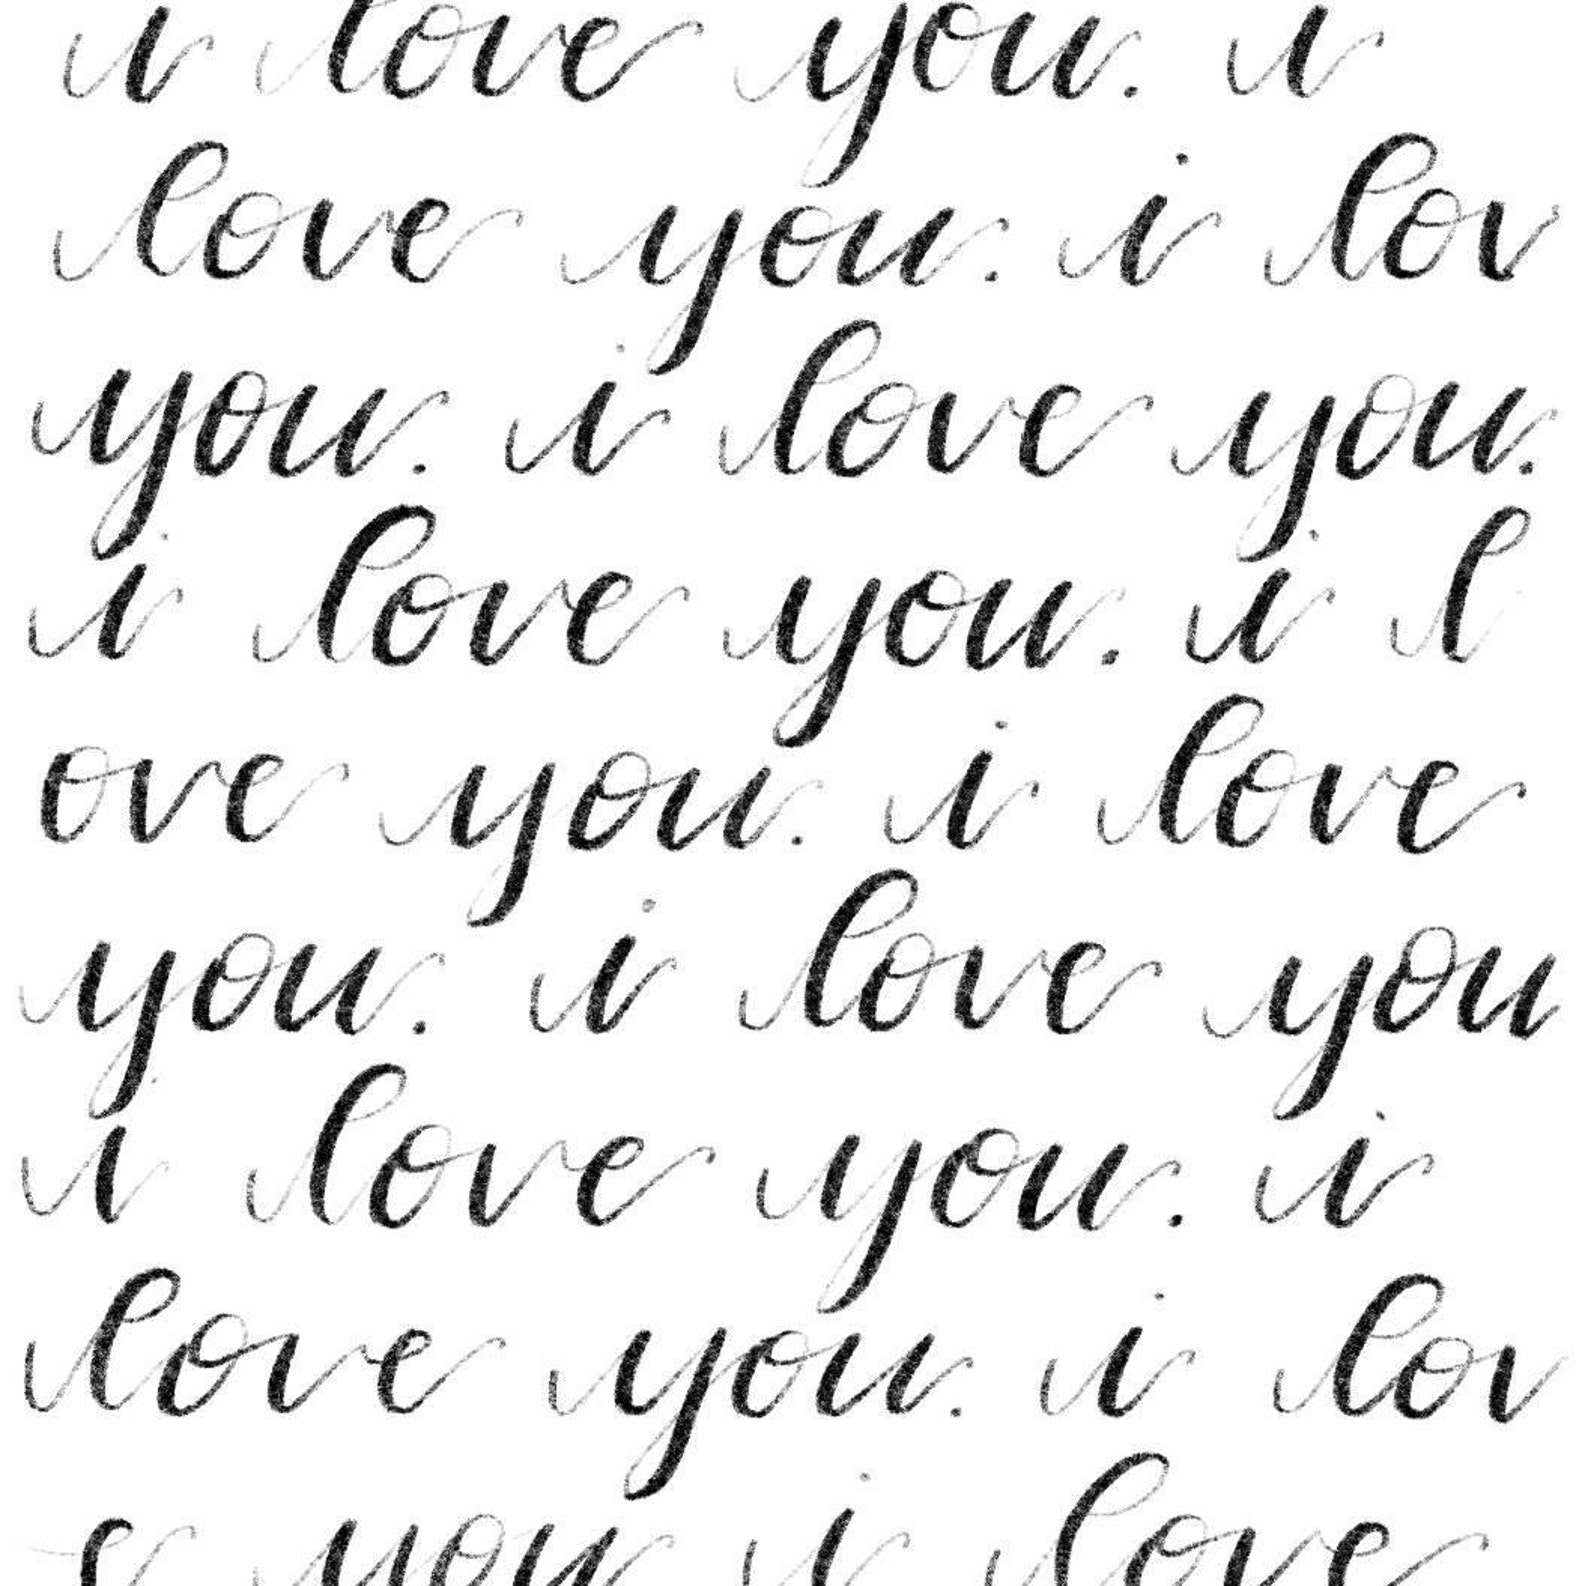 i love you. i
love you. i lov
you. i love you.
i love you. i l
ove you. i love
you. i love you
i love you. i
love you. i lov
e you i love